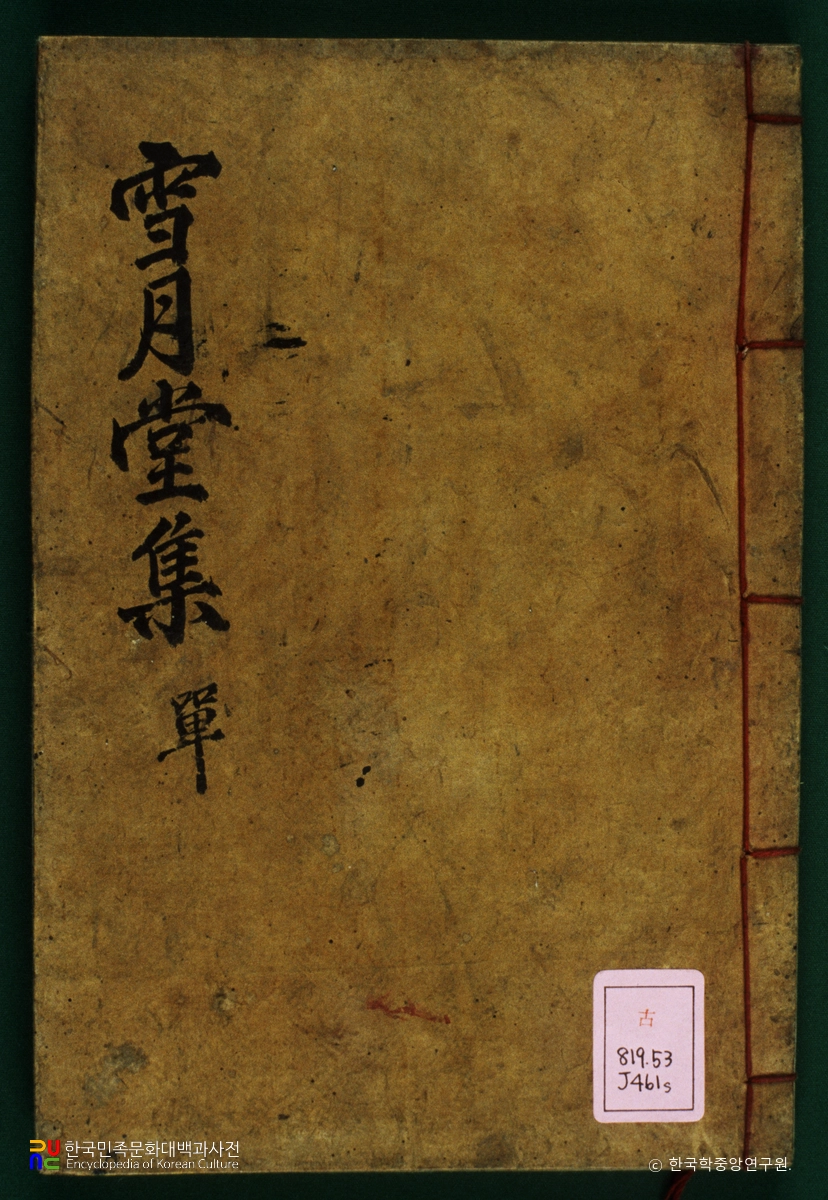 雪月堂集 單
二
古
819.53
J461s
한국민족문화대백과사전
Encyclopedia of Korean Culture
© 한국학중앙연구원.